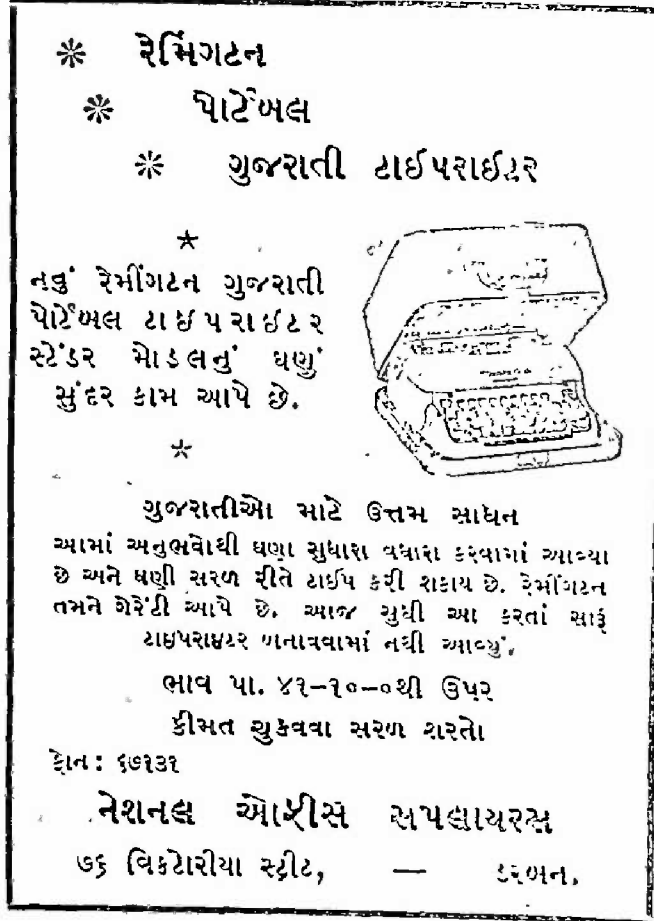 રેમિંગટન
પોર્ટેબલ
ગુજરાતી ટાઈપરાઈટર
નવું રેમીંગટન ગુજરાતી
પોર્ટેબલ ટાઇપરાઇટર
સ્ટેંડર મોડલનું ઘણું
સુંદર કામ આપે છે.
ગુજરાતીઓ માટે ઉત્તમ સાધન
આમાં અનુભવોથી ઘણા સુધારા વધારા કરવામાં આવ્યા
છે અને ઘણી સરળ રીતે ટાઈપ કરી શકાય છે. રેમીંગટન
તમને ગેરેંટી આપે છે. આજ સુધી આ કરતાં સારૂં
ટાઇપરાઇટર બનાવવામાં નથી આવ્યું.
ભાવ પા. ૪૧-૧૦-૦થી ઉપર
કીમત ચુકવવા સરળ શરતો
ફોન: ૬૭૧૩૧
નેશનલ ઓફીસ સપલાયરસ
૭૬ વિકટોરીયા સ્ટ્રીટ, — ડરબન.